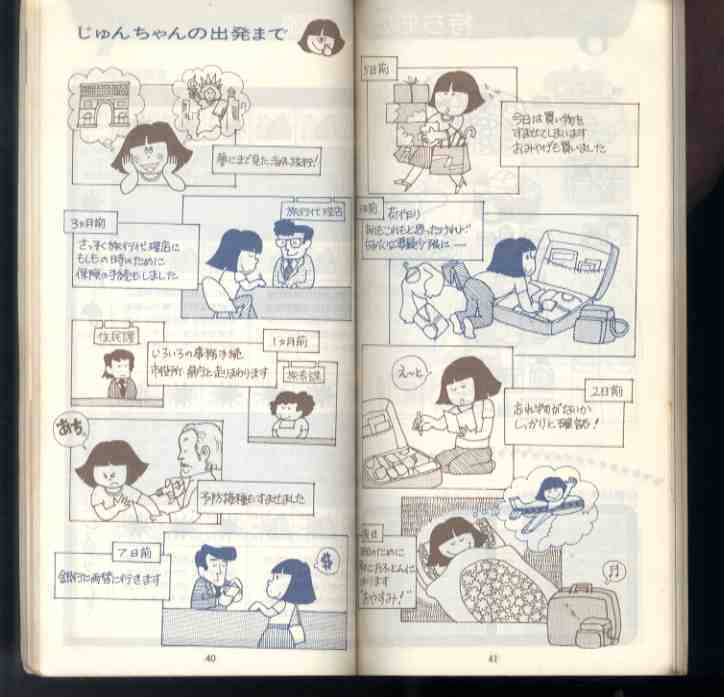 じゅんちゃんの出発まで
夢にまで見た海外旅行!
3ヵ月前
旅行代理店
さっそく旅行代理店に
もしもの日時のために
保険の手続もしました
住民課
1ヵ月前
いろいろの事務手続
市役所・銀行と走りまわります
あち
予防接種もすませました
7日前
銀行に両替に行きます
$
40
5日前
今日は買い物を
すませてしまいます
おみやげも買いました
荷作り
え〜と
2日前
忘れ物がないか
しっかりと確認!
前日
のために
おふとんに
入ります
"おやすみ!"
41